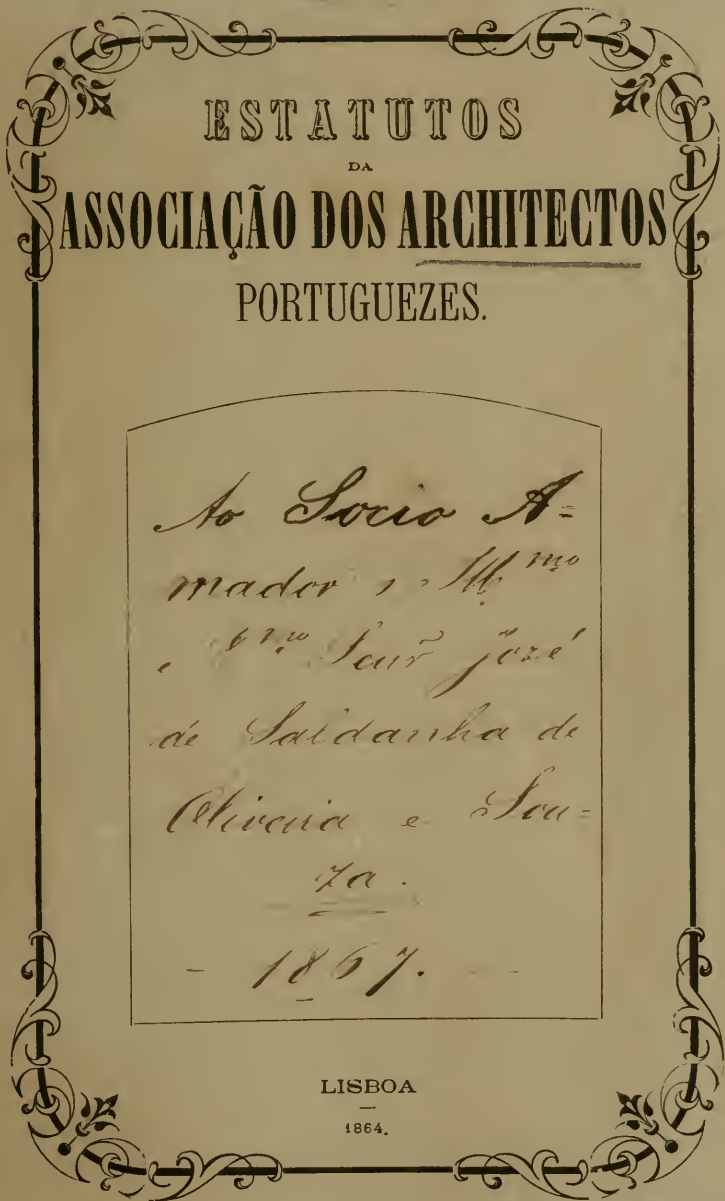 ESTATUTOS
DA
ASSOCIAÇÃO DOS ARCHITECTOS
PORTUGUEZES.
Ao Socio A=
mador Ill.mo
e Senr José
de Saldanha de
Oliveira e Sou=
za.
- 1867. -
LISBOA
1864.